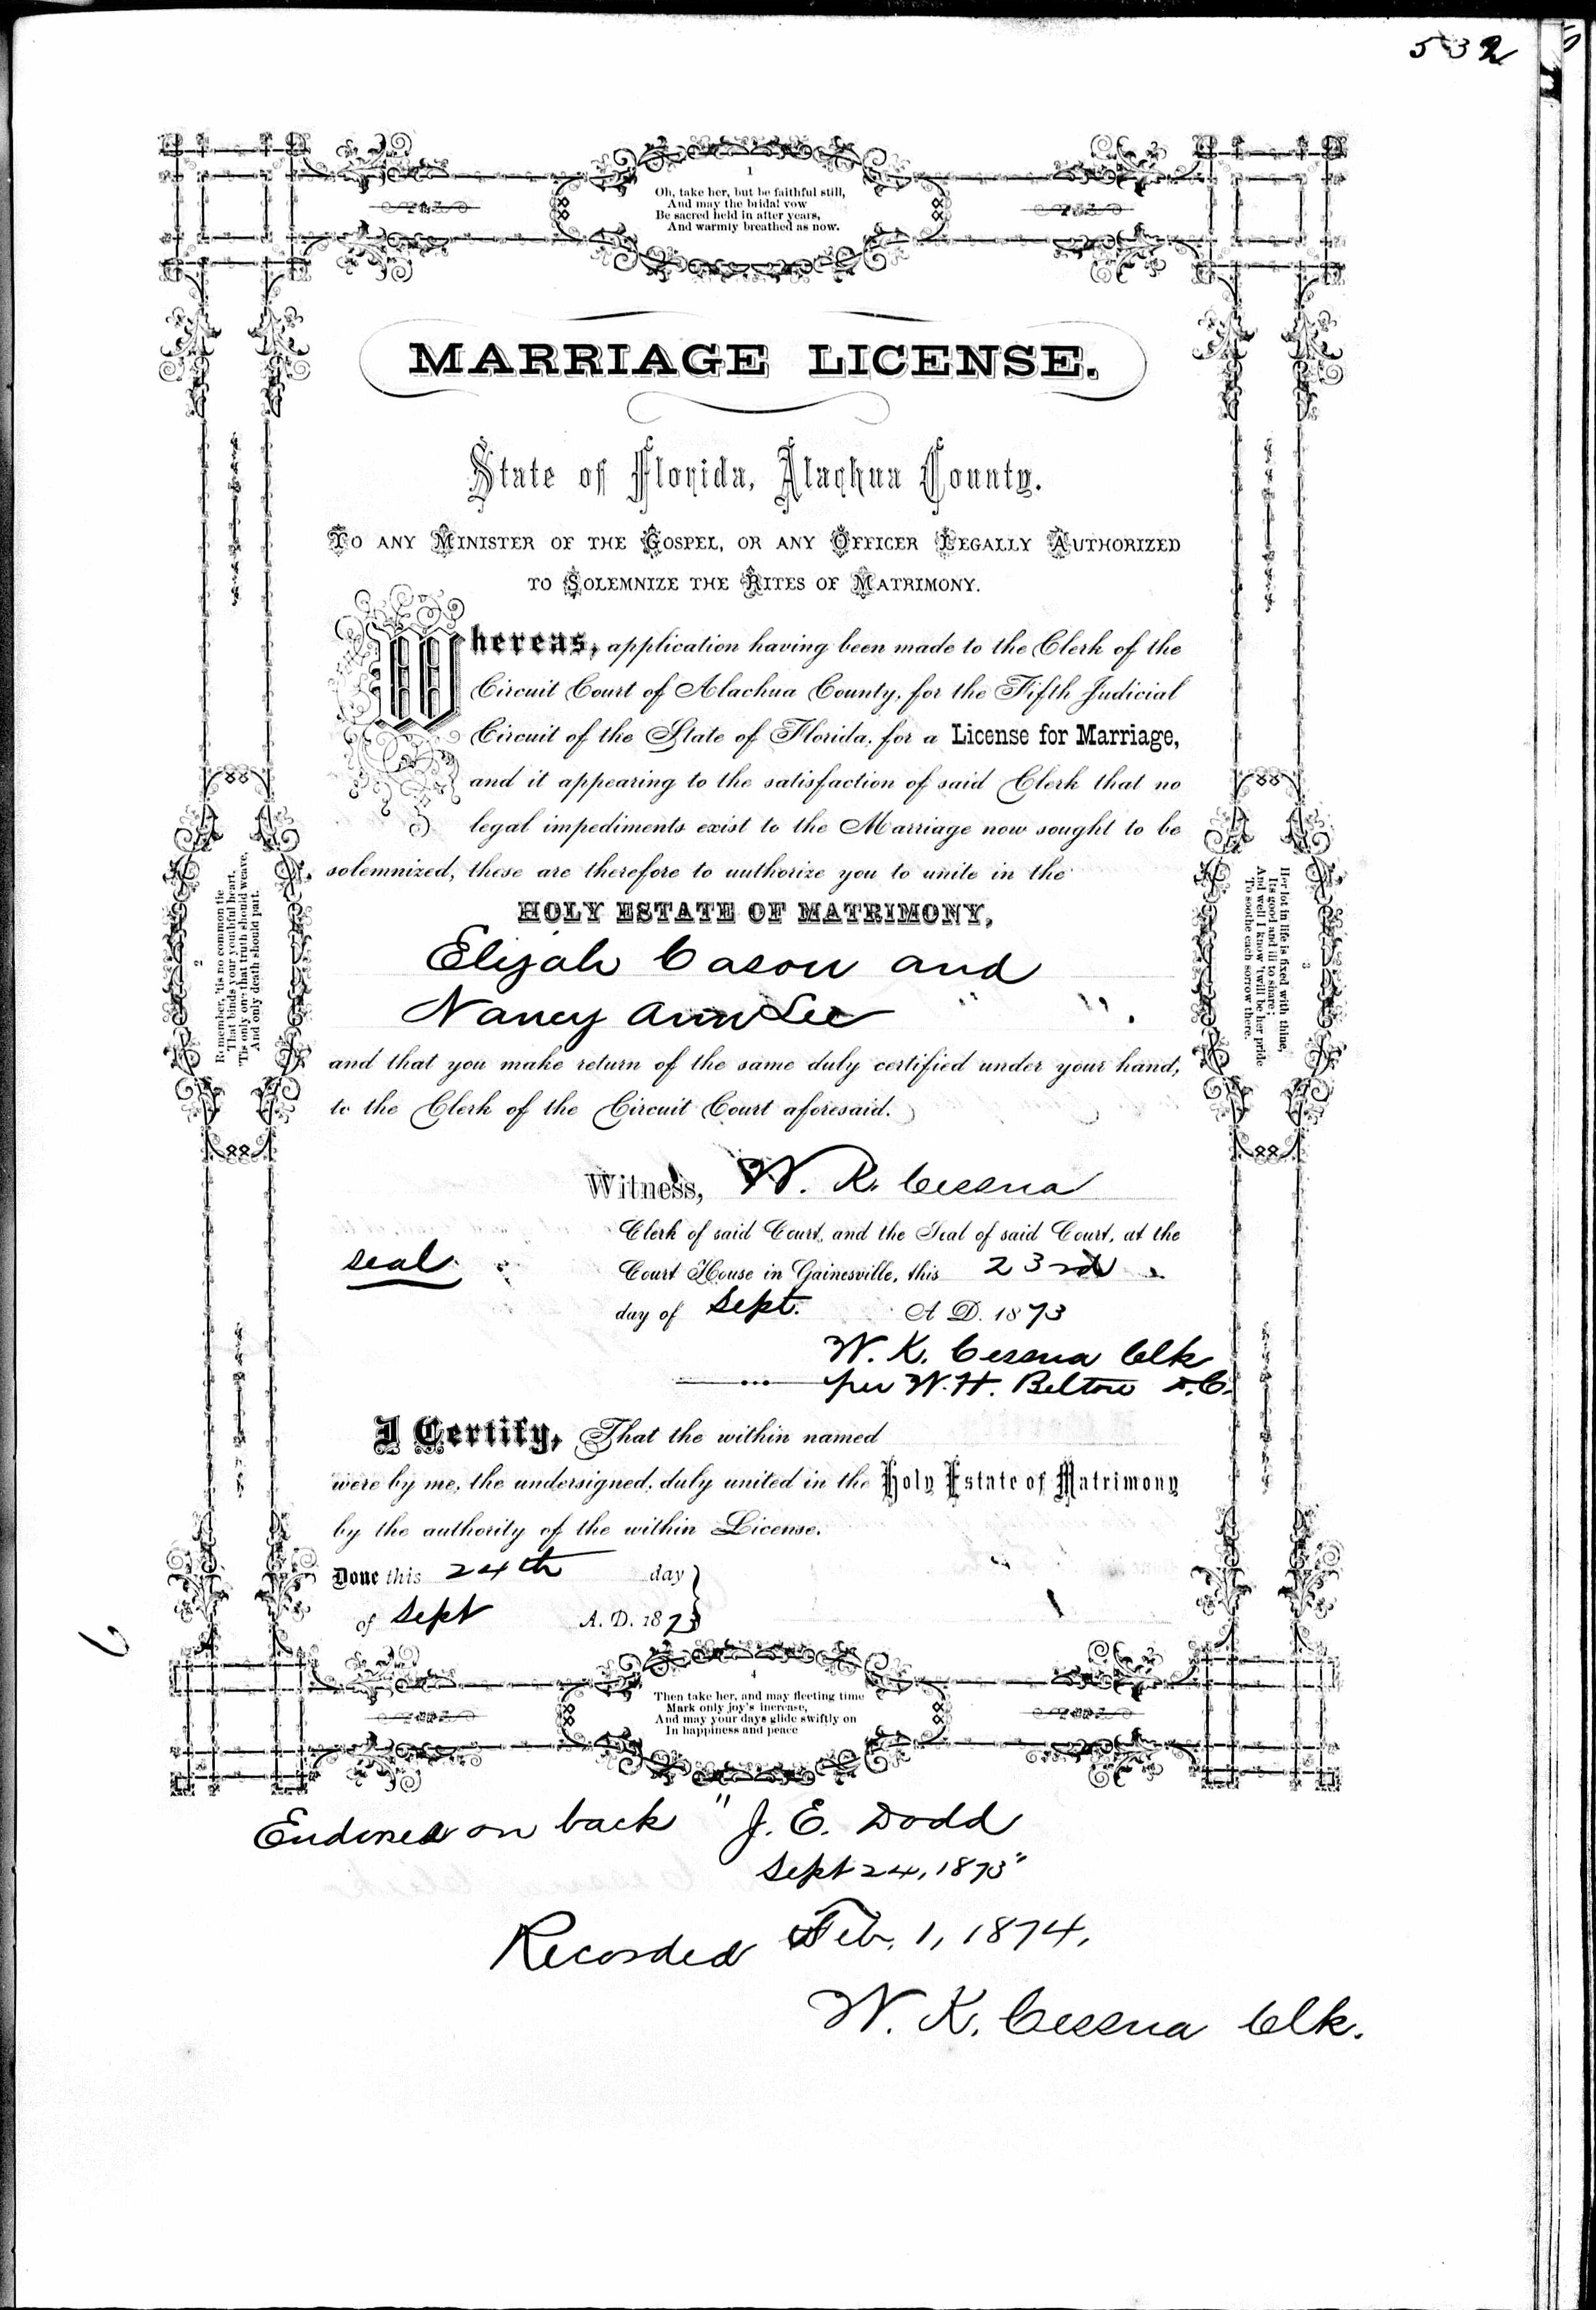 532
1
Oh, take her, but be faithful still,
And may the bridal vow
Be sacred held in after years,
And warmly breathed as now.
MARRIAGE LICENSE.
State of Florida, Alachua County.
TO ANY MINISTER OF THE GOSPEL, OR ANY OFFICER LEGALLY AUTHORIZED
TO SOLEMNIZE THE RITES OF MATRIMONY.
Whereas, application having been made to the Clerk of the
Circuit Court of Alachua County, for the Fifth Judicial
Circuit of the State of Florida, for a License for Marriage,
and it appearing to the satisfaction of said Clerk that no
legal impediments exist to the Marriage now sought to be
solemnized, these are therefore to authorize you to unite in the
HOLY ESTATE OF MATRIMONY,
Elijah Cason and
Nancy Ann Lee " " .
and that you make return of the same duly certified under your hand,
to the Clerk of the Circuit Court aforesaid.
2
Remember, 'tis no common tie
That binds your youthful heart,
'Tis only one that truth should weave,
And only death should part.
3
Her lot in life is fixed with thine,
Its good and ill to share;
And well I know 'twill be her pride
To soothe each sorrow there.
Witness, W. K. Cessna
Clerk of said Court, and the Seal of said Court, at the
seal
Court House in Gainesville, this 23rd
day of Sept. A D. 1873
W. K. Cessna Clk
per W. H. Belton D.C.
I Certify, That the within named
were by me, the undersigned, duly united in the Holy Estate of Matrimony
by the authority of the within License.
Done this 24th day
of Sept A. D. 1873
4
Then take her, and may fleeting time
Mark only joy's increase,
And may your days glide swiftly on
In happiness and peace
Endorsed on back "J. E. Dodd
Sept 24, 1873"
Recorded Feb. 1, 1874,
W. K. Cessna Clk.